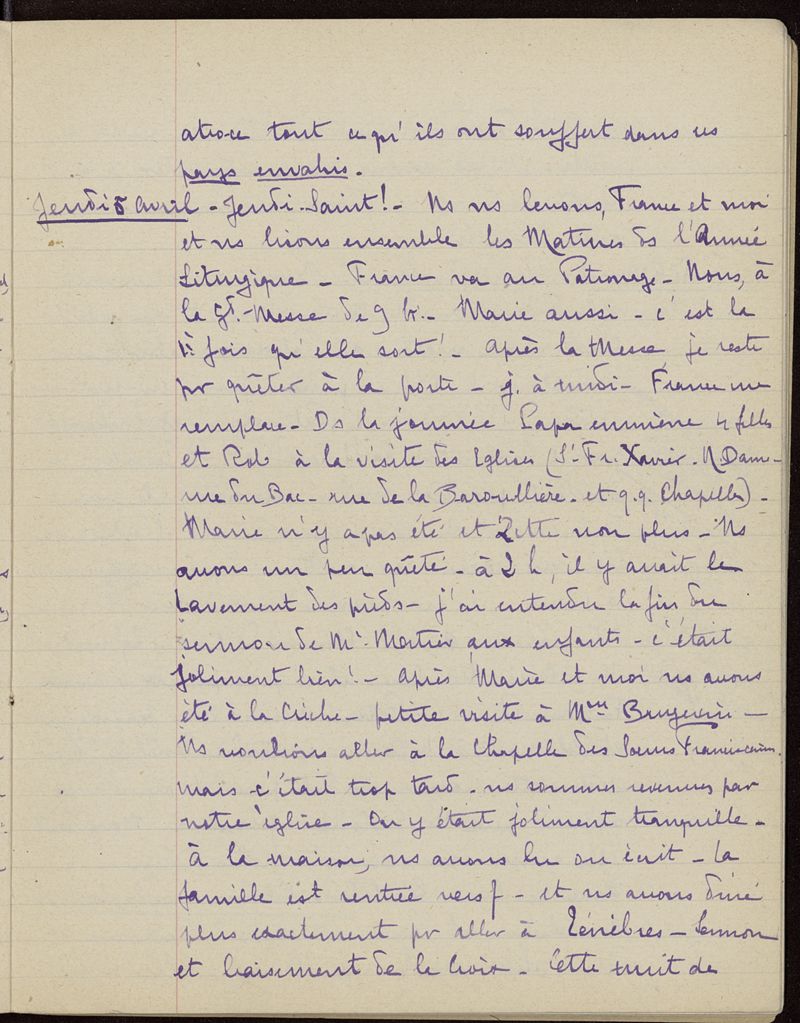 atroce tout ce qu'ils ont souffert dans ces
pays envahis.
Jeudi 5 avril - Jeudi-Saint! - Ns ns levons, France et moi
et ns lisons ensemble les Matines ds l'Année
Liturgique - France va au Patronage - Nous, à
la Gd.-Messe de 9 h. - Marie aussi - c'est la
1è fois qu'elle sort! - Après la Messe, je reste
pr quêter à la porte - j. à midi - France me
remplace - Ds la journée Papa emmène 4 filles
et Rob à la visite des Eglises (St-Fr. Xavier - N. Dame -
rue du Bac - rue de la Barouillière - et q.q. Chapelles) -
Marie n'y a pas été et Zette non plus - Ns
avons un peu quêté - à 2 h, il y avait le
Lavement des pieds - j'ai entendu la fin du
sermon de Mr. Mortier aux enfants - c'était
joliment bien! - Après Marie et moi ns avons
été à la Crèche - petite visite à Mme
Ns voulions aller à la Chapelle des Soeurs Franciscaines.
mais c'était trop tard - ns sommes revenues par
notre église - On y était joliment tranquille -
à la maison, ns avons lu ou écrit - La
famille est rentrée vers 7 - et ns avons dîné
plus exactement pr aller à Ténèbres - Sermon
et baisement de la Croix - Cette nuit de